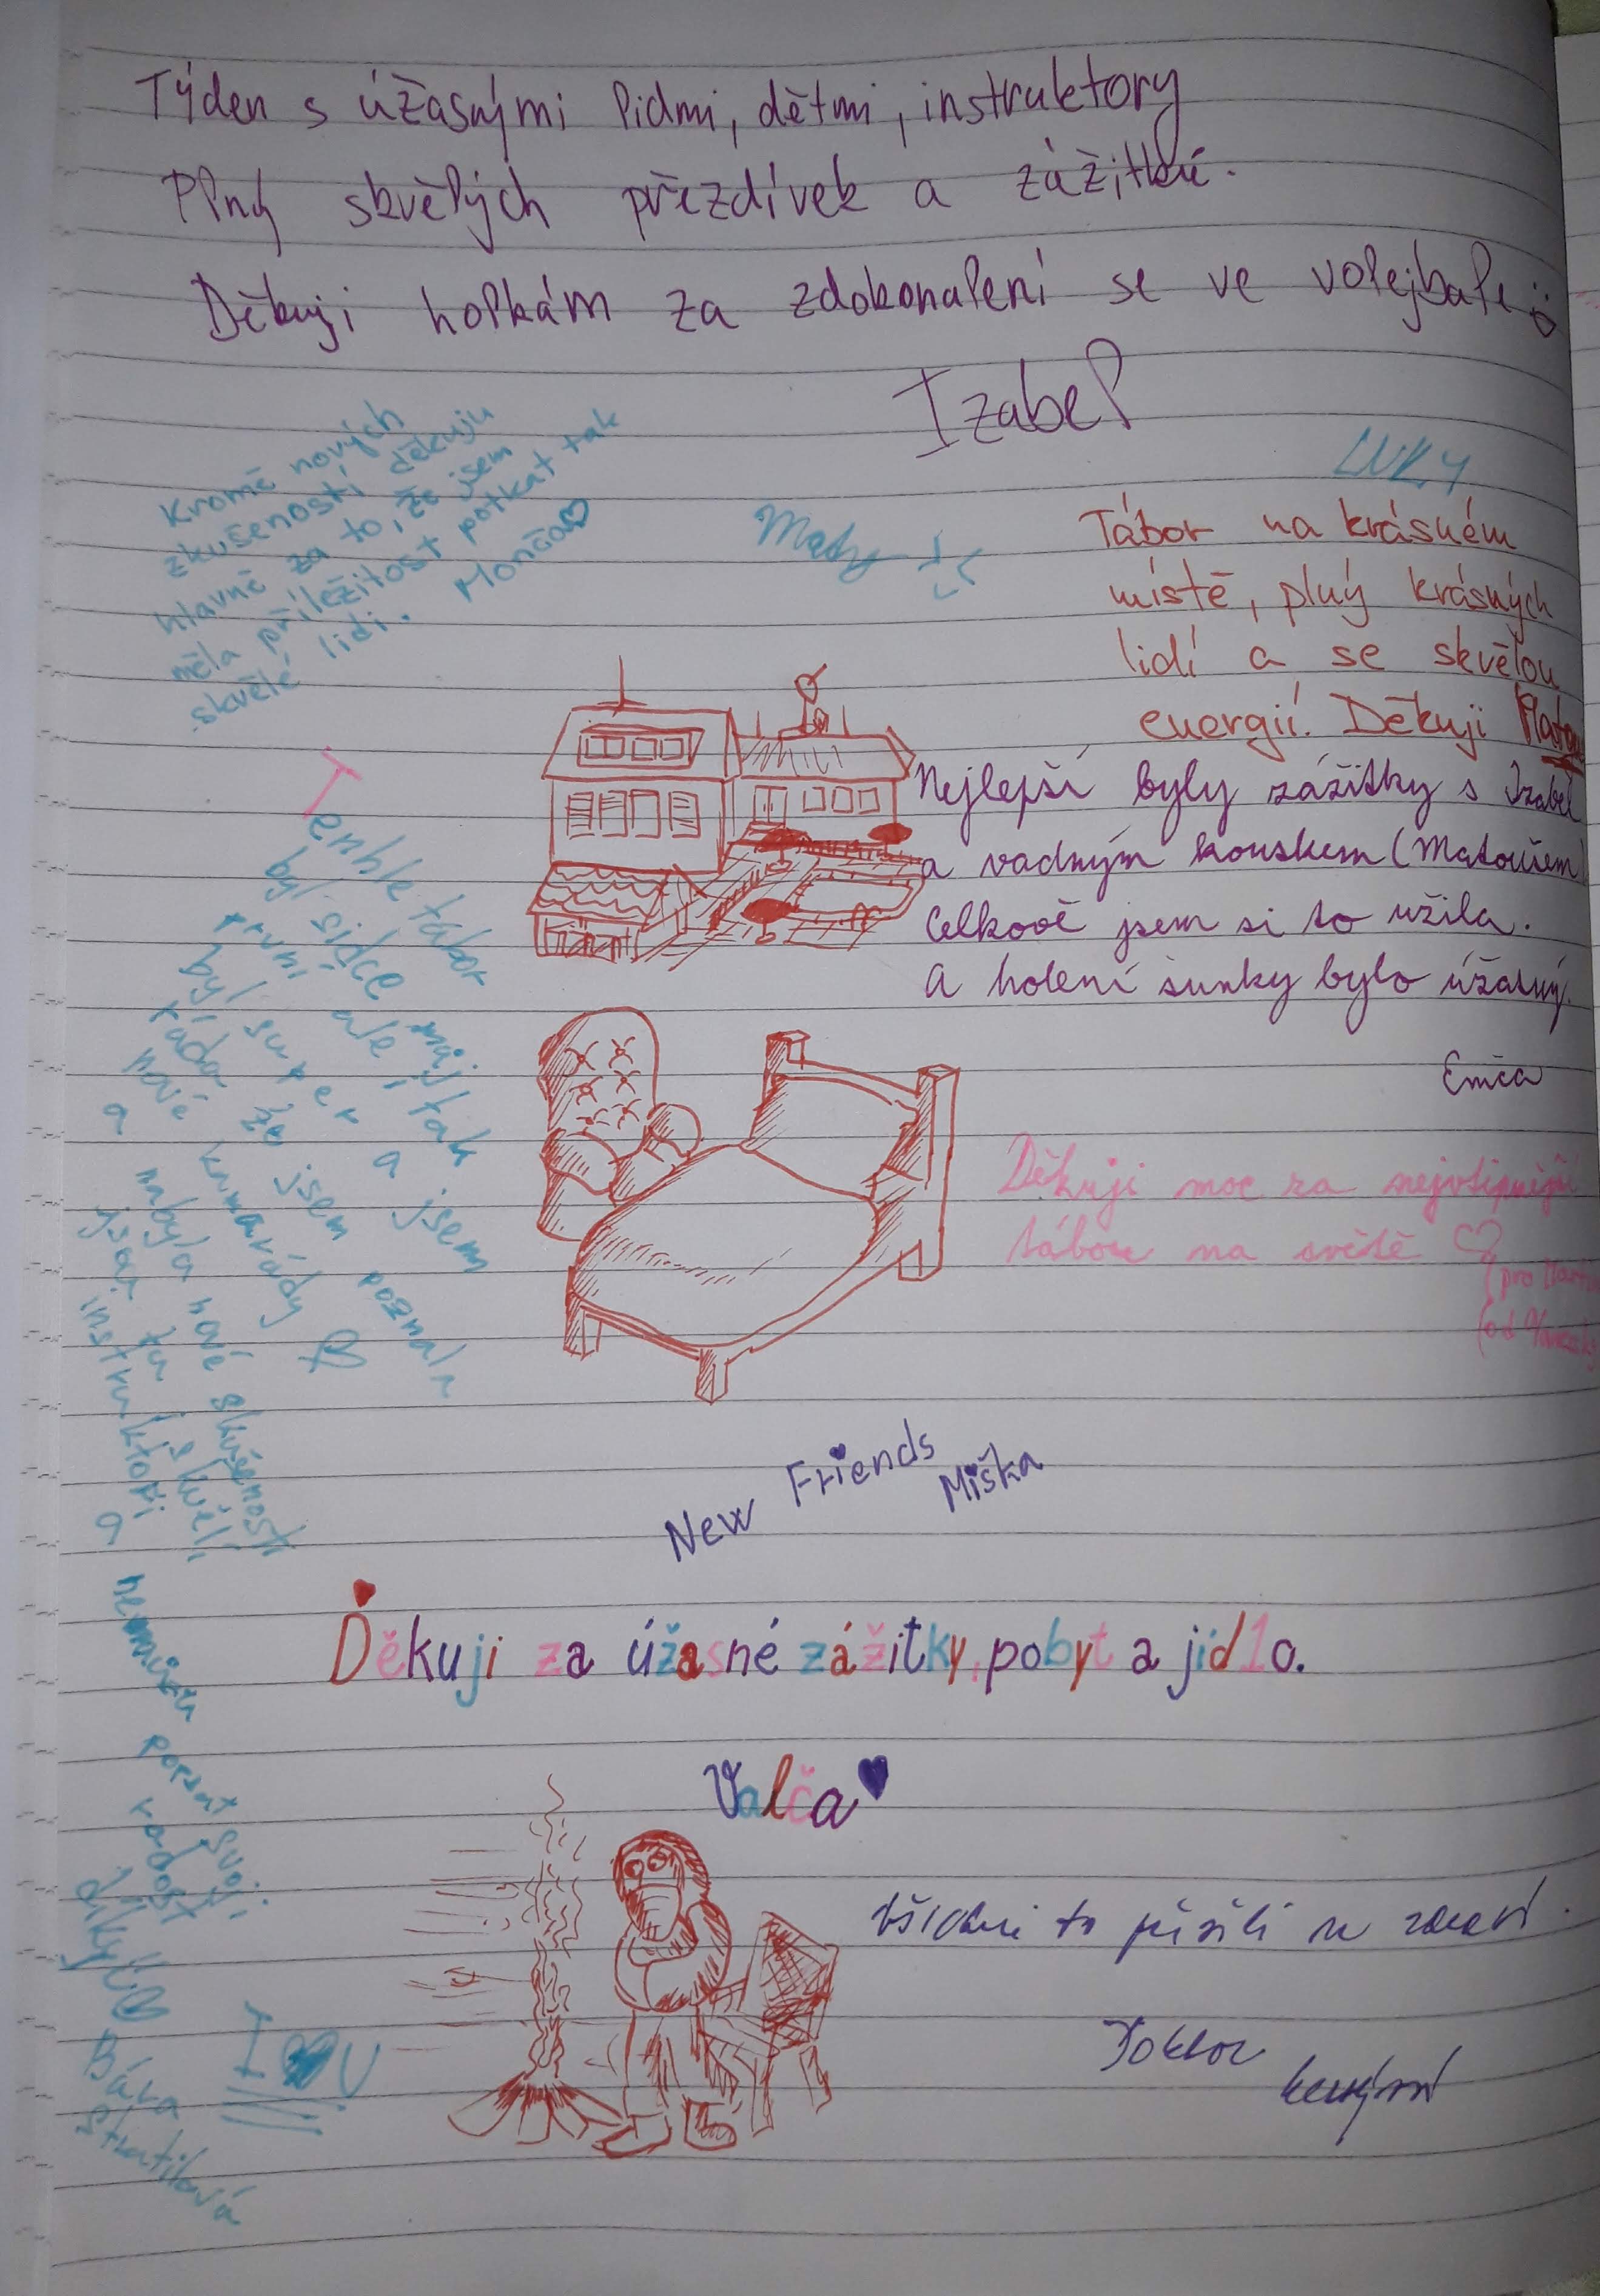 Týden s úžasnými lidmi, dětmi, instruktory
Plný skvělých přezdívek a zážitků.
Děkuji holkám za zdokonalení se ve volejbale
Izabel
Kromě nových
zkušeností děkuju
hlavně za to, že jsem
měla příležitost potkat tak
skvělé lidi. Monča
Maty
LUKY
Tábor na krásném
místě, plný krásných
lidí a se skvělou
energií. Děkuji
Nejlepší byly zážitky s Izabel
a vadným kouskem (Matoušem)
Celkově jsem si to užila.
A holení šunky bylo úžasný.
Emča
Děkuji moc za nejvtipnější
tábor na světě
(pro
(od
Tenhle tábor
byl sidce můj
první ale i tak
byl super a jsem
ráda že jsem poznala
nové kamarády
a nabyla nové skušenosti
jsou tu i skvělí
instruktoři a
porzat svoji
radost
díky
Bára
I U
New Friends
Miška
Děkuji za úžasné zážitky, pobyt a jídlo.
Valča
to přežili ve zdraví.
Doktor